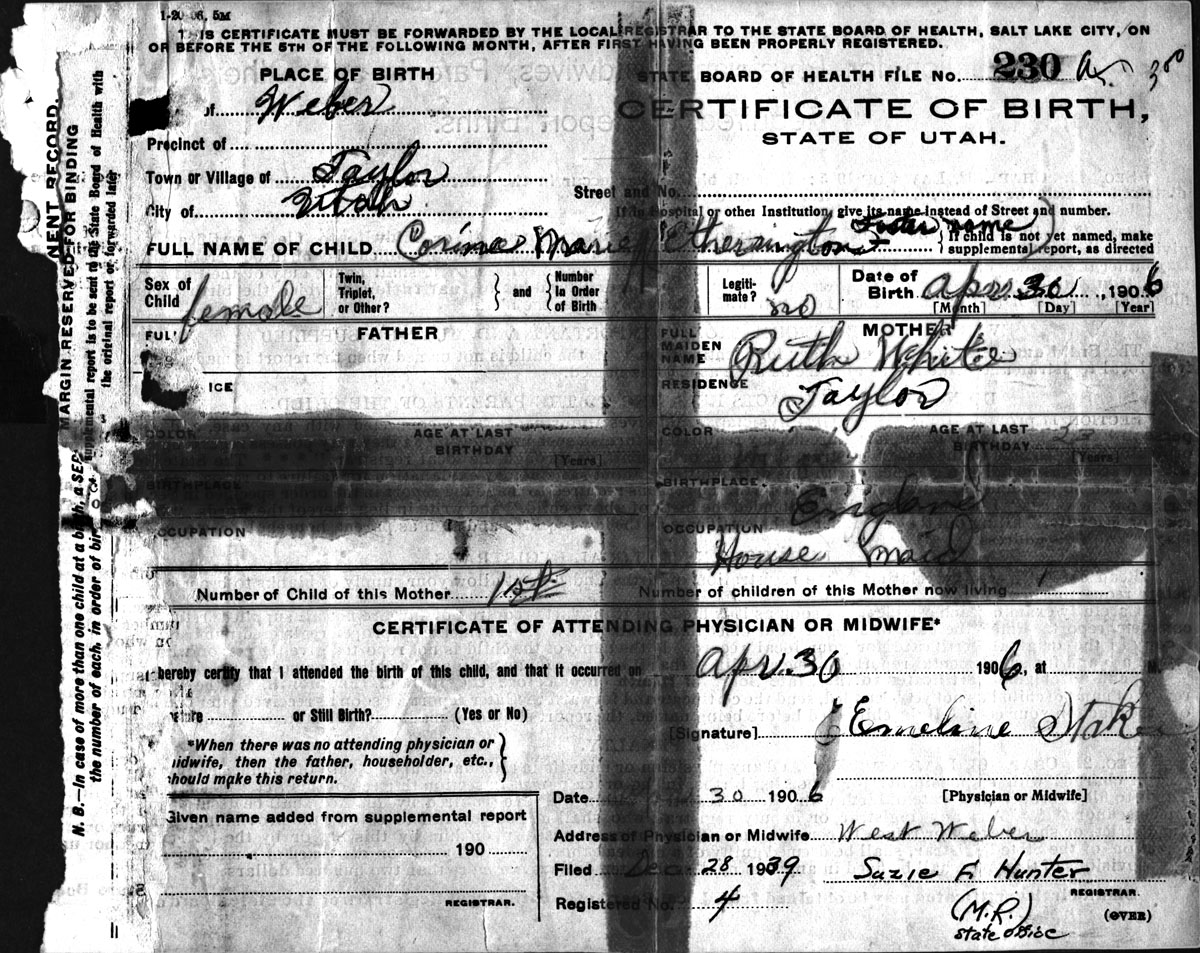 1-20-06, 5M
THIS CERTIFICATE MUST BE FORWARDED BY THE LOCAL REGISTRAR TO THE STATE BOARD OF HEALTH, SALT LAKE CITY, ON
OR BEFORE THE 5TH OF THE FOLLOWING MONTH, AFTER FIRST HAVING BEEN PROPERLY REGISTERED.
PLACE OF BIRTH
STATE BOARD OF HEALTH FILE No. 230
of Weber
CERTIFICATE OF BIRTH,
STATE OF UTAH.
Precinct of
Town or Village of Taylor
Street and No.
City of Utah
If in Hospital or other Institution, give its name instead of Street and number.
FULL NAME OF CHILD Corinne Marie Etherington Foster name
If child is not yet named, make
supplemental report, as directed
Sex of Child female
Twin, Triplet, or Other? and Number in Order of Birth
Legitimate? no
Date of Birth Apr 30, 1906
[Month] [Day] [Year]
FATHER
MOTHER
FULL MAIDEN NAME Ruth White
RESIDENCE Taylor
COLOR
AGE AT LAST BIRTHDAY [Years]
COLOR
AGE AT LAST BIRTHDAY [Years]
BIRTHPLACE
BIRTHPLACE England
OCCUPATION
OCCUPATION House maid
Number of Child of this Mother 1st
Number of children of this Mother now living
CERTIFICATE OF ATTENDING PHYSICIAN OR MIDWIFE*
hereby certify that I attended the birth of this child, and that it occurred on Apr. 30 1906, at M.
or Still Birth? (Yes or No)
[Signature] Emeline
*When there was no attending physician or
midwife, then the father, householder, etc.,
should make this return.
Date 30 1906
[Physician or Midwife]
Given name added from supplemental report
190
REGISTRAR.
Address of Physician or Midwife West Weber
Filed Dec 28 1939
Suzie F. Hunter
REGISTRAR.
Registered No. 4
(M.R.)
State office
(OVER)
MARGIN RESERVED FOR BINDING
supplemental report is to be sent to the State Board of Health with
the original report or forwarded later
N. B.—In case of more than one child at a birth, a SEP
the number of each, in order of birt